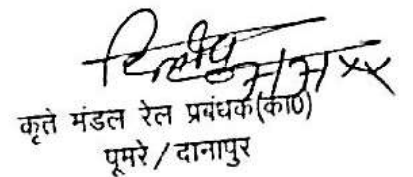 कृते मंडल रेल प्रबंधक(का०)
पूमरे / दानापुर